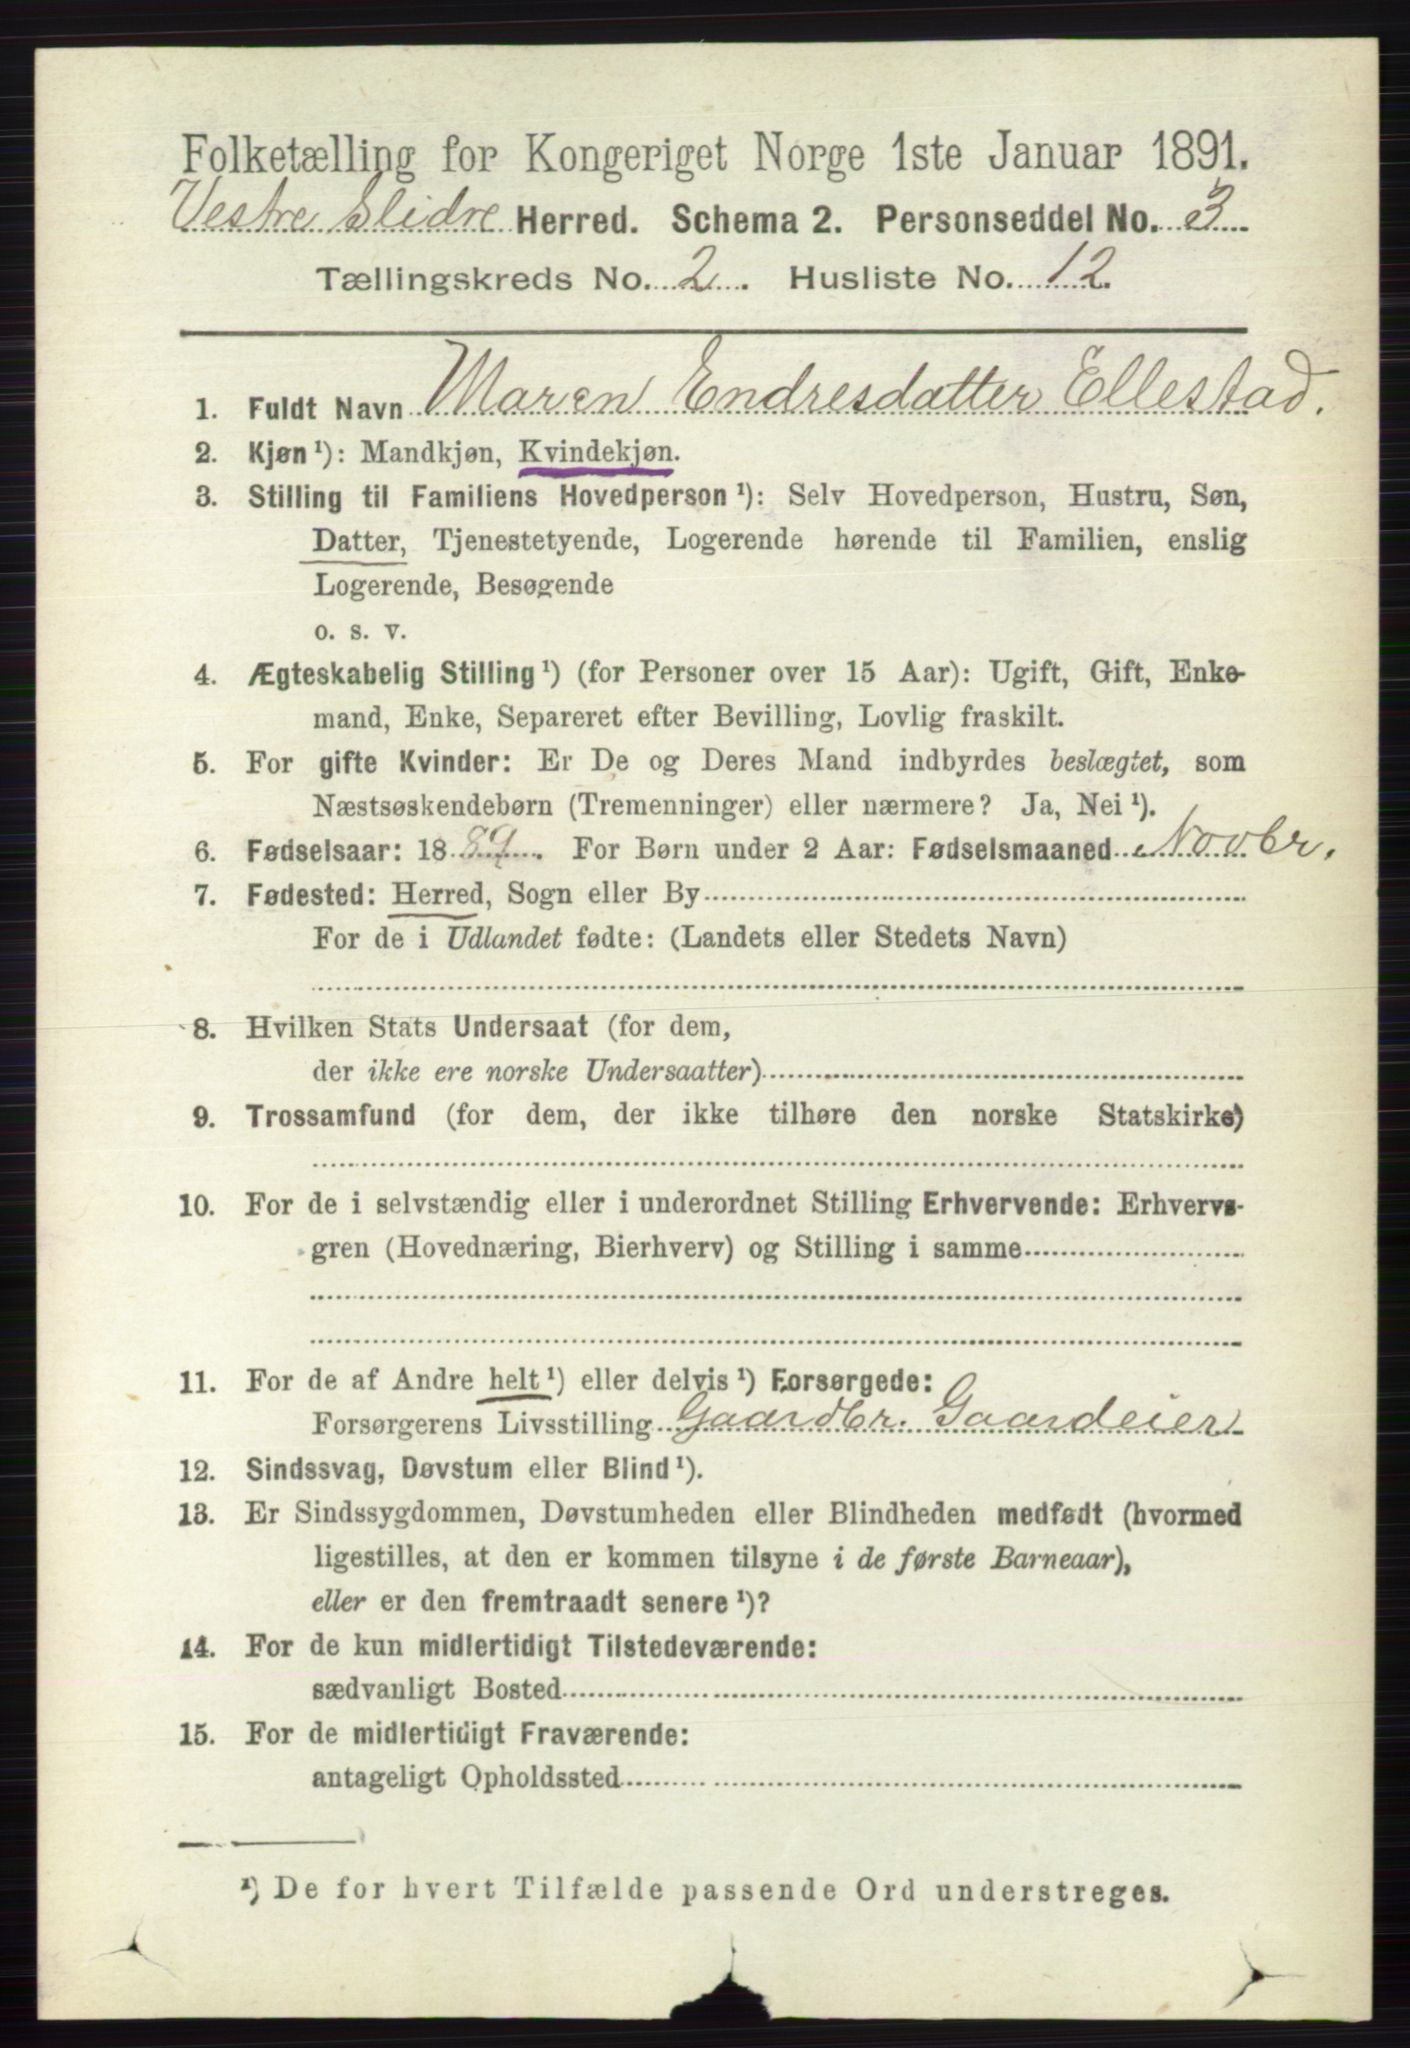 Folketælling for Kongeriget Norge 1ste Januar 1891.
Vestre Slidre Herred. Schema 2. Personseddel No. 3
Tællingskreds No. 2. Husliste No. 12.
1. Fuldt Navn Maren Endresdatter Ellestad.
2. Kjøn ¹): Mandkjøn, Kvindekjøn.
3. Stilling til Familiens Hovedperson ¹): Selv Hovedperson, Hustru, Søn,
Datter, Tjenestetyende, Logerende hørende til Familien, enslig
Logerende, Besøgende
o. s. v.
4. Ægteskabelig Stilling ¹) (for Personer over 15 Aar): Ugift, Gift, Enke-
mand, Enke, Separeret efter Bevilling, Lovlig fraskilt.
5. For gifte Kvinder: Er De og Deres Mand indbyrdes beslægtet, som
Næstsøskendebørn (Tremenninger) eller nærmere? Ja, Nei ¹).
6. Fødselsaar: 1889. For Børn under 2 Aar: Fødselsmaaned Novbr.
7. Fødested: Herred, Sogn eller By
For de i Udlandet fødte: (Landets eller Stedets Navn)
8. Hvilken Stats Undersaat (for dem,
der ikke ere norske Undersaatter)
9. Trossamfund (for dem, der ikke tilhøre den norske Statskirke)
10. For de i selvstændig eller i underordnet Stilling Erhvervende: Erhvervs-
gren (Hovednæring, Bierhverv) og Stilling i samme
11. For de af Andre helt ¹) eller delvis ¹) Forsørgede:
Forsørgerens Livsstilling Gaardbr. Gaardeier
12. Sindssvag, Døvstum eller Blind ¹).
13. Er Sindssygdommen, Døvstumheden eller Blindheden medfødt (hvormed
ligestilles, at den er kommen tilsyne i de første Barneaar),
eller er den fremtraadt senere ¹)?
14. For de kun midlertidigt Tilstedeværende:
sædvanligt Bosted
15. For de midlertidigt Fraværende:
antageligt Opholdssted
¹) De for hvert Tilfælde passende Ord understreges.